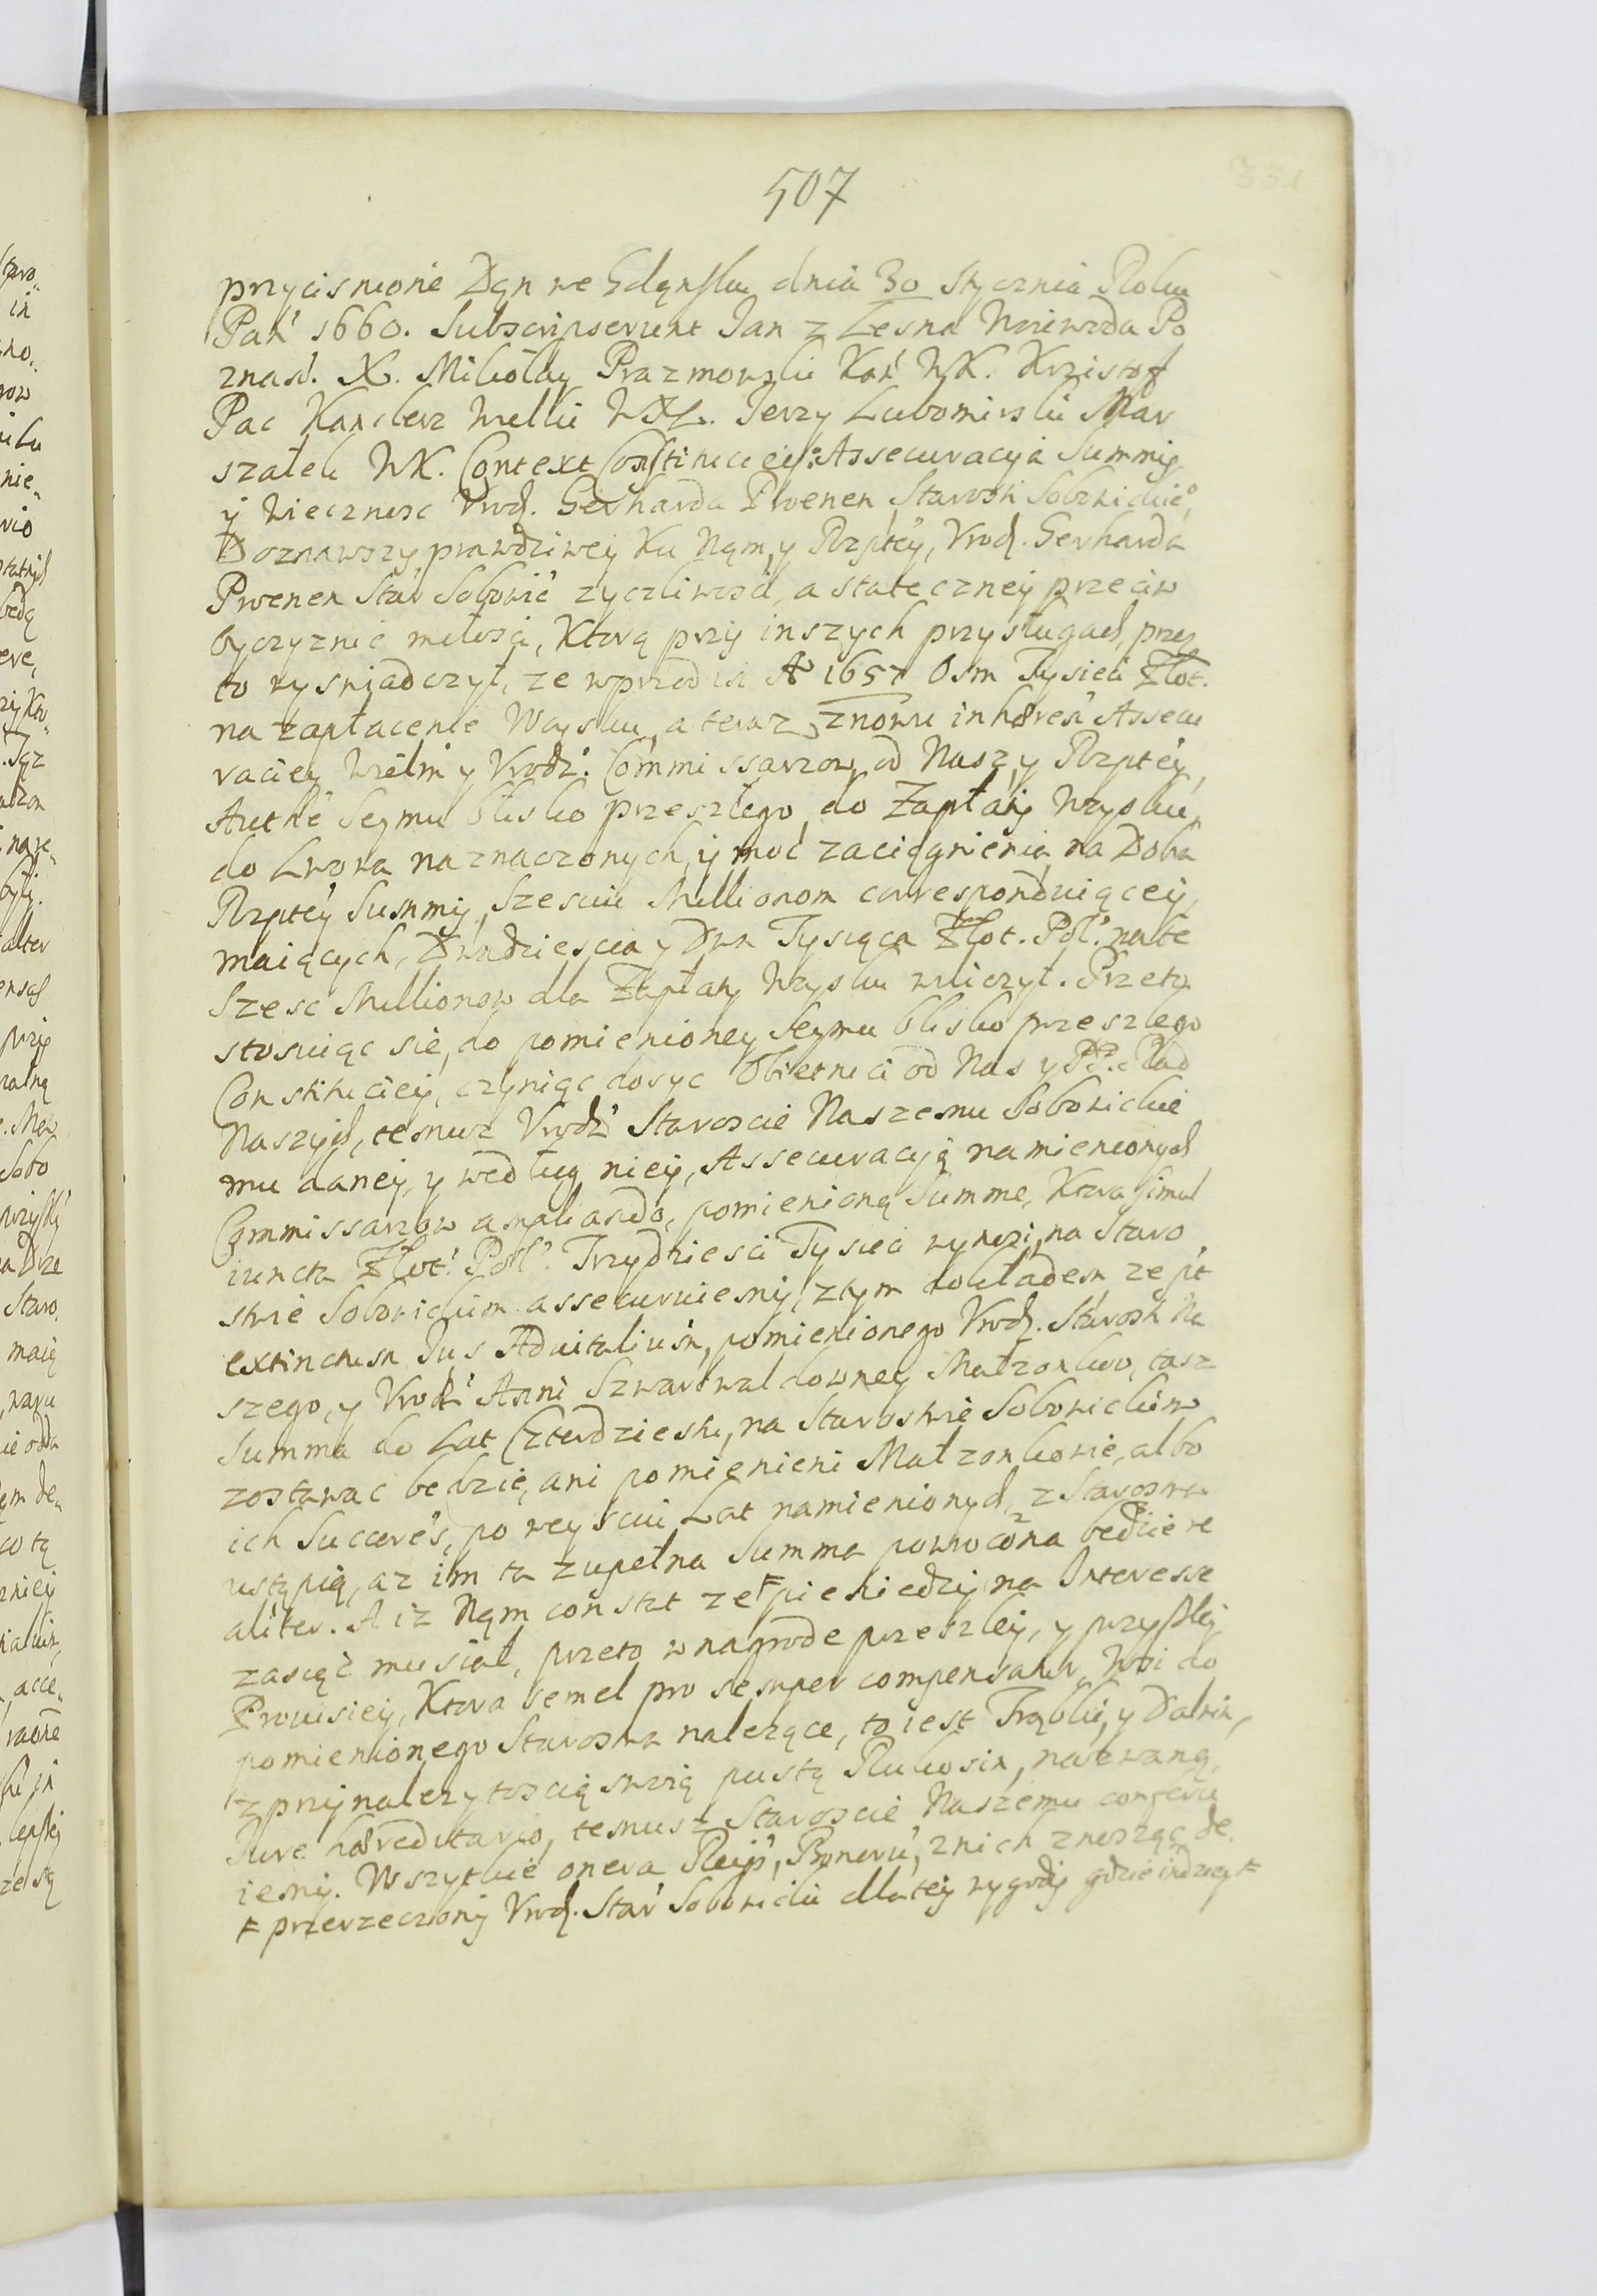 507
331
przycisnione Dąn we Gdąnsku dnia 30 Stycznia Roku
Pań 1660. Subscripserunt Jan z Lesna Woiewoda Po
znań. X. Mikołay Prazmowski Kań WK. Krzistof
Pac Kanclerz Wielki WXL. Jerzy Lubomirski Mar
szałek WK. Context Constituciey: Assecuracyia Summy
y Wiecznosc Vrod. Gerharda Proenen Starosti Sobowickie°,
Doznawszy prawdziwey Ku Nąm, y Rzptey, Vrod. Gerharda
Proenen Star Sobowic zyczliwosci, a stateczney przeciw
oyczyznie miłosci, Ktorą przy inszych przysługach, przez
to wyswiadczył, ze wprzod in A° 1657 Osm Tysieci Złot.
na zapłacenie Woysku, a teraz znowu inhæren Assecu
raciey Wielm y Vrodz. Commissarzow od Nas, y Rzptey,
Authē Seymu blisko przeszłego, do Zapłaty Woysku,
do Lwowa naznaczonych, y moć zaciągnienia na Dobra
Rzptey Summy, Szesciu Millionom correspondviącey,
maiących, Dwadziescia y Dwa Tysiąca Złot. Pol. na te
Szesc Millionow dla Zapłaty Woysku wliczył. Przeto
stosuiąc sie, do pomienioney Seymu blisko przeszłego
Constituciey, czyniąc dosyc Obietnici od Nas y PP. Rad
Naszych, temusz Vrodz Staroscie Naszemu Sobowickie
mu daney, y według niey, Assecuracyią namienionych
Commissarzow ampliando, pomienioną Summe, Ktora simul
iuncta Złot. Pol. Trzydziesci Tysieci wynosi, na Staro
stwie Sobowickim assecuruiemy, z tym dokładem, ze pt
extinctum Jus Aduitalium, pomienionego Vrod. Starosti Na
szego, y Vrodz Anni Szwarcwaldowney Małzonkow, tasz
Summa do Lat Czterdziestu, na Starostwie Sobowickim
zostawac bedzie, ani pomienieni Małzonkowie, albo
ich Succores, po wysciu Lat namienionych, z Starostwa
ustąpią, az im ta zupełna Summa powrocona bedzie ne
aliter. A iz Nąm constat ze # pieniedzy na Interesse
zaciąć musiał, przeto w nagrode przeszley, y przyszley
Prouisiey, Ktora semel pro semper compensatur, Wsi do
pomienionego Starostwa nalezące, to iest Trąbki, y Dalwin,
z przynalezytoscią swoią pustą Rukosin, nazwaną,
Jure hæreditario, temusz Staroscie Naszemu conferu
iemy. Wszytkie onera Reip, Bonoru, z nich znosząc de
# przerzeczony Vrod. Star Sobowicki dla tey wygody gdzie indziey #